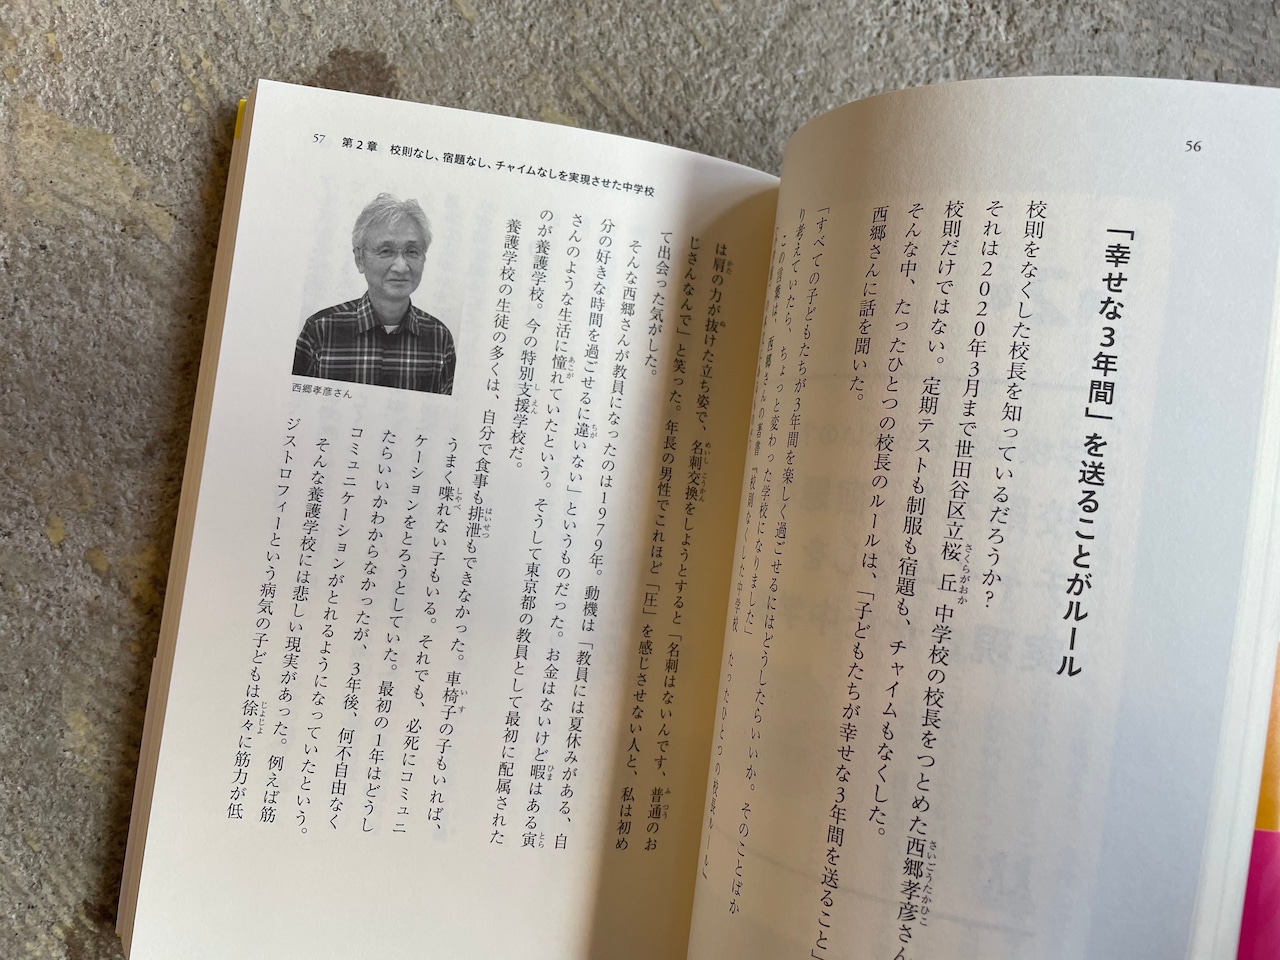 56
「幸せな3年間」を送ることがルール
校則をなくした校長を知っているだろうか？
それは2020年3月まで世田谷区立桜丘中学校の校長をつとめた西郷孝彦さん
さくらがおか
さいごうたかひこ
校則だけではない。定期テストも制服も宿題も、チャイムもなくした。
そんな中、たったひとつの校長のルールは、「子どもたちが幸せな3年間を送ること」
西郷さんに話を聞いた。
「すべての子どもたちが3年間を楽しく過ごせるにはどうしたらいいか。そのことばか
り考えていたら、ちょっと変わった学校になりました」
この言葉は、西郷さんの著書『校則なくした中学校 たったひとつの校長ルール』
57 第2章 校則なし、宿題なし、チャイムなしを実現させた中学校
は肩の力が抜けた立ち姿で、名刺交換をしようとすると「名刺はないんです、普通のお
かた
ぬ
めいし こうかん
ふつう
じさんなんで」と笑った。年長の男性でこれほど「圧」を感じさせない人と、私は初め
て出会った気がした。
そんな西郷さんが教員になったのは1979年。動機は「教員には夏休みがある、自
分の好きな時間を過ごせるに違いない」というものだった。お金はないけど暇はある寅
ちが
ひま
とら
さんのような生活に憧れていたという。そうして東京都の教員として最初に配属された
あこが
のが養護学校。今の特別支援学校だ。
しえん
養護学校の生徒の多くは、自分で食事も排泄もできなかった。車椅子の子もいれば、
はいせつ
いす
うまく喋れない子もいる。それでも、必死にコミュニ
しゃべ
ケーションをとろうとしていた。最初の1年はどうし
たらいいかわからなかったが、3年後、何不自由なく
コミュニケーションがとれるようになっていたという。
そんな養護学校には悲しい現実があった。例えば筋
ジストロフィーという病気の子どもは徐々に筋力が低
じょじょ
西郷孝彦さん